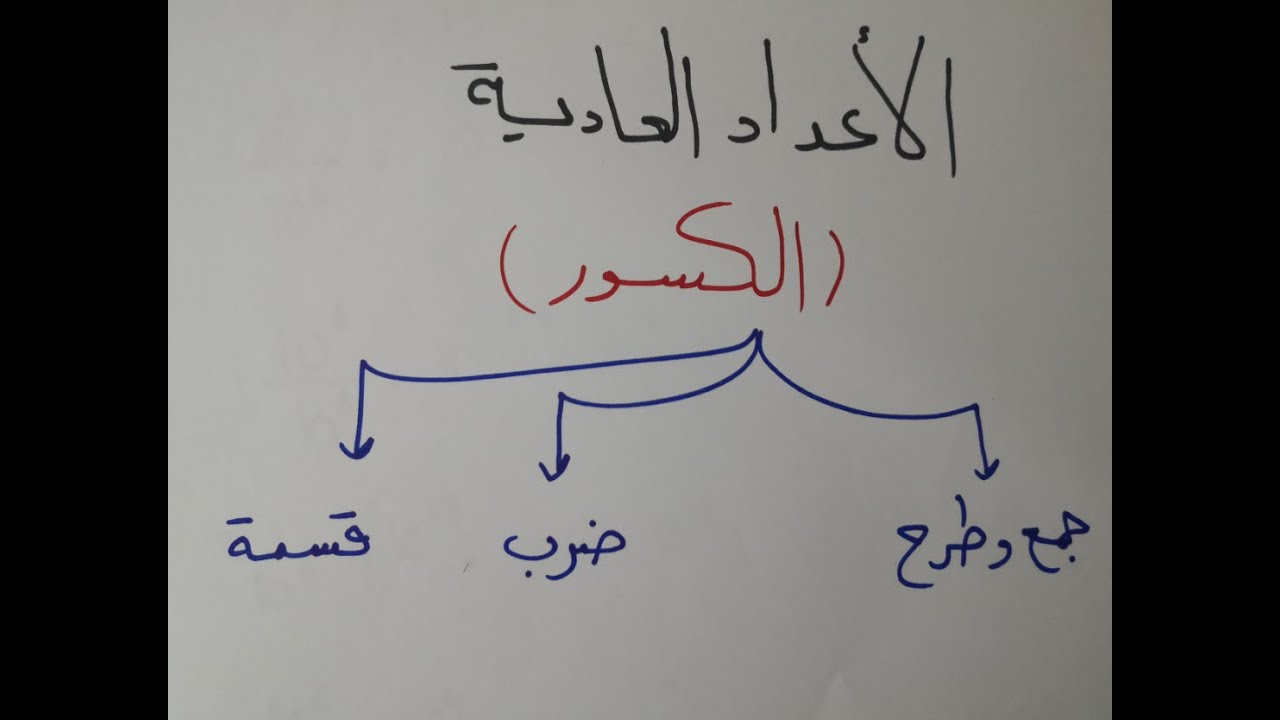 الأعداد العادية
(الكسور)
جمع وطرح
ضرب
قسمة